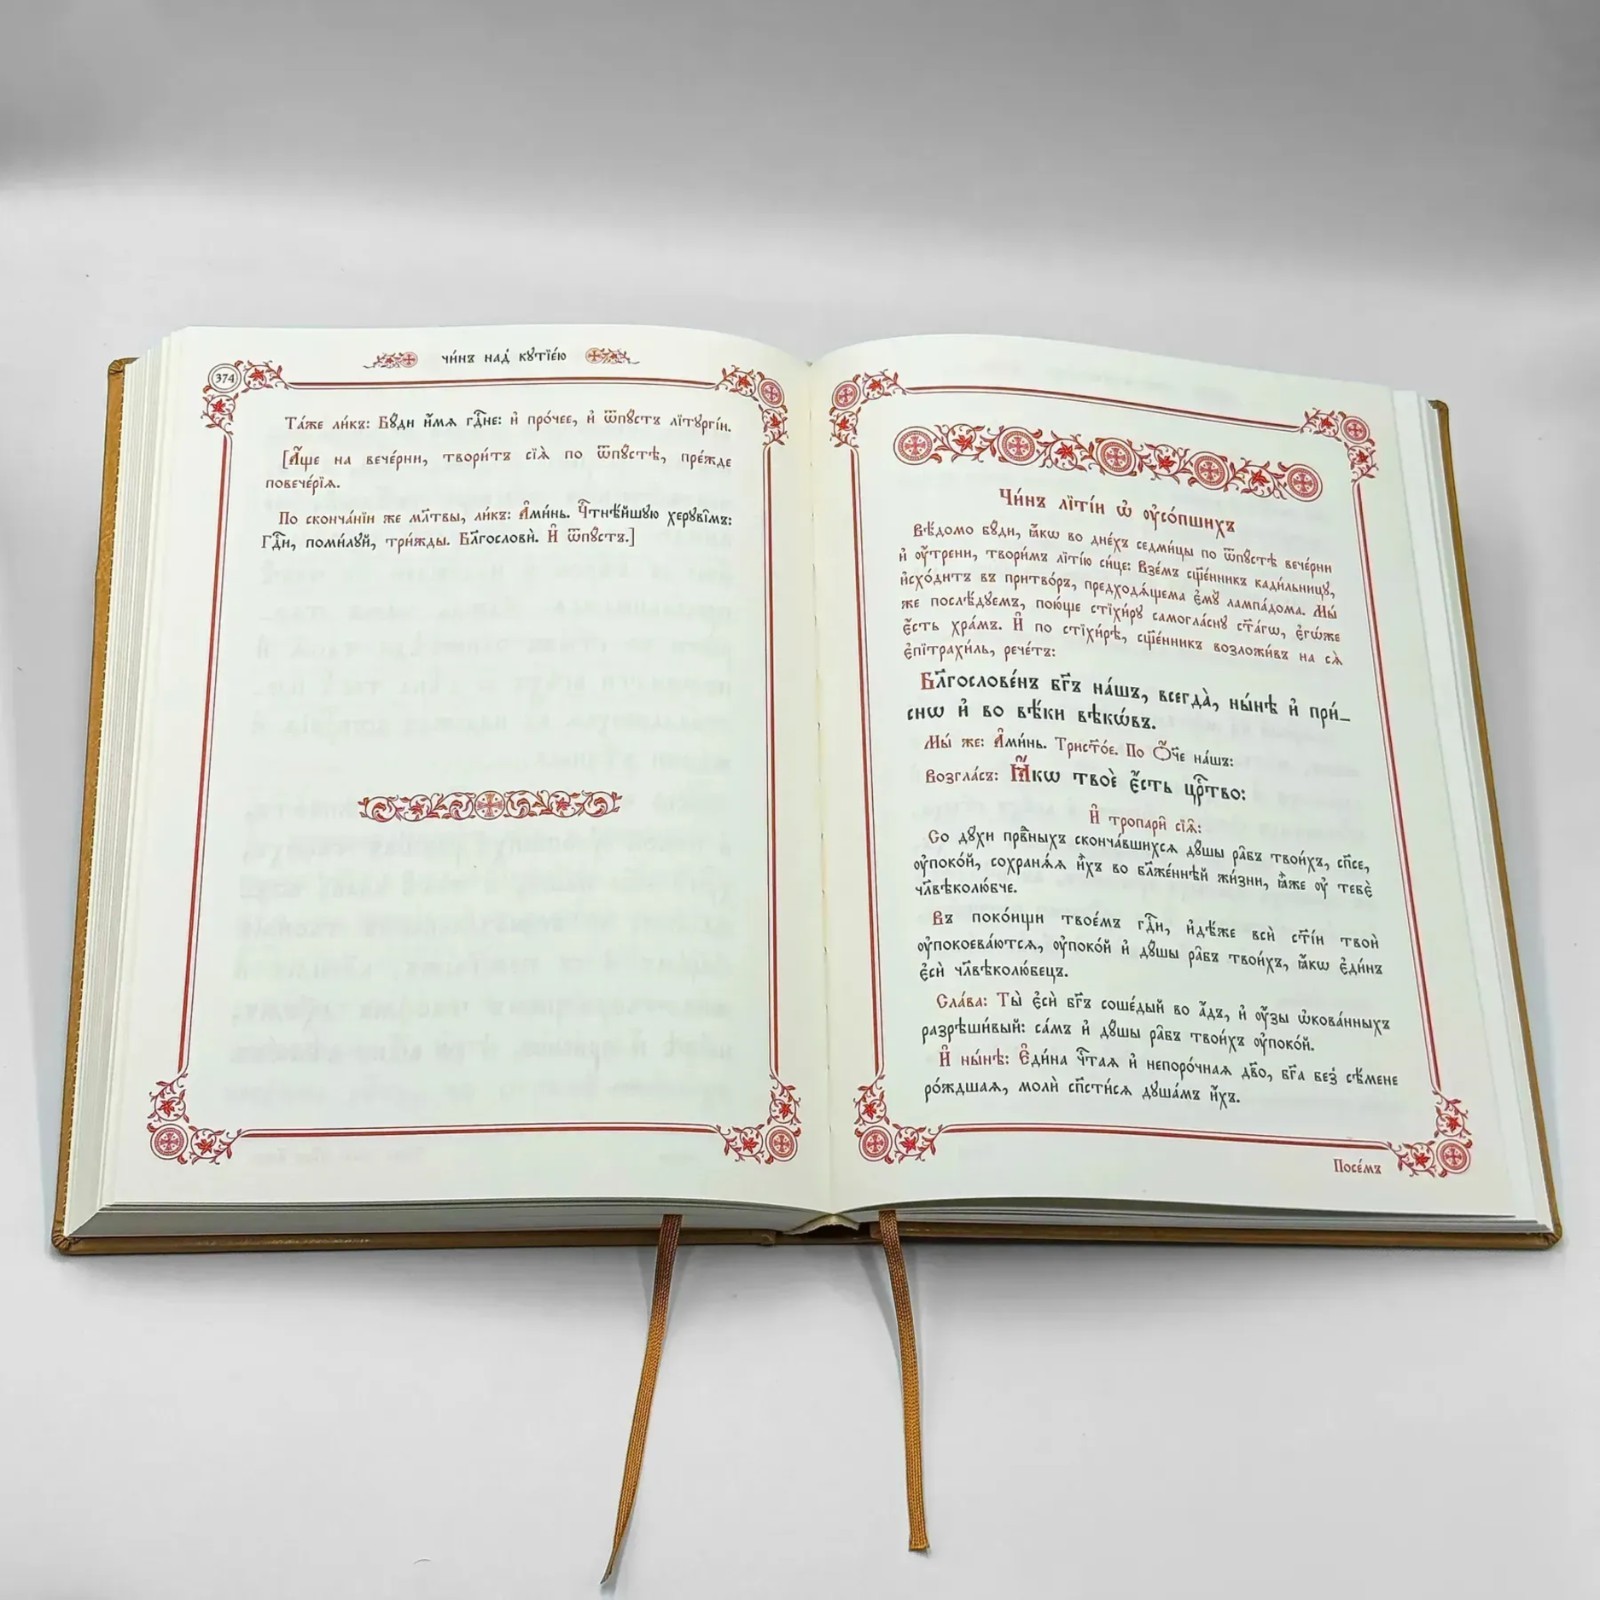 374
чи́нъ над̾ кꙋтїе́ю
Та́же ли́къ: Бꙋ́ди и҆́мѧ гдⷭ҇не: и҆ про́чее, и҆ ѿпꙋ́стъ лїтꙋргі́и.
[А҆́ще на вече́рни, твори́тъ сїѧ̑ по ѿпꙋ́стѣ, пре́жде
повече́рїѧ.
По сконча́нїи же мл҃твы, ли́къ: А҆ми́нь. Чⷭ҇тнѣ́йшꙋю херꙋві̑мъ:
Гдⷭ҇и, поми́лꙋй, три́жды. Бл҃гословѝ. И҆ ѿпꙋ́стъ.]
Чи́нъ лїті́и ѡ҆ ᲂу҆со́пшихъ
Вѣ́домо бꙋ́ди, ꙗ҆́кѡ во дне́хъ седми́цы по ѿпꙋ́стѣ вече́рни
и҆ ᲂу҆́трени, твори́мъ лїті́ю си́це: Взе́мъ сщ҃е́нникъ кади́льницꙋ,
и҆схо́дитъ въ притво́ръ, предходѧ́щема є҆мꙋ̀ лампа́дома. Мы́
же послѣ́дꙋемъ, пою́ще стїхи́рꙋ самогла́снꙋ ст҃а́гѡ, є҆гѡ́же
є҆́сть хра́мъ. И҆ по стїхи́рѣ, сщ҃е́нникъ возложи́въ на сѧ̀
є҆пїтрахи́ль, рече́тъ:
Бл҃гослове́нъ бг҃ъ на́шъ, всегда̀, ны́нѣ и҆ при́_
снѡ и҆ во вѣ́ки вѣкѡ́въ.
Мы́ же: А҆ми́нь. Трист҃о́е. По Ѻ҆́ч҃е на́шъ:
Возгла́съ: Ꙗ҆́кѡ твоѐ є҆́сть црⷭ҇тво:
И҆ тропари̑ сїѧ̑:
Со дꙋ́хи прⷣвныхъ сконча́вшихсѧ дꙋ́шы ра̑бъ твои́хъ, сп҃се,
ᲂу҆поко́й, сохранѧ́ѧ и҆̀хъ во бл҃же́ннѣй жи́зни, ꙗ҆́же ᲂу҆ тебє̀
чл҃вѣколю́бче.
Въ поко́ищи твое́мъ гдⷭ҇и, и҆дѣ́же всѝ ст҃і́и твоѝ
ᲂу҆покоева́ютсѧ, ᲂу҆поко́й и҆ дꙋ́шы ра̑бъ твои́хъ, ꙗ҆́кѡ є҆ди́нъ
є҆сѝ чл҃вѣколю́бецъ.
Сла́ва: Ты̀ є҆сѝ бг҃ъ соше́дый во а҆́дъ, и҆ ᲂу҆́зы ѡ҆кова́нныхъ
разрѣши́вый: са́мъ и҆ дꙋ́шы ра̑бъ твои́хъ ᲂу҆поко́й.
И҆ ны́нѣ: Є҆ди́на чⷭ҇таѧ и҆ непоро́чнаѧ дв҃о, бг҃а без̾ сѣ́мене
ро́ждшаѧ, молѝ сп҃сти́сѧ дꙋша́мъ и҆́хъ.
Посе́мъ